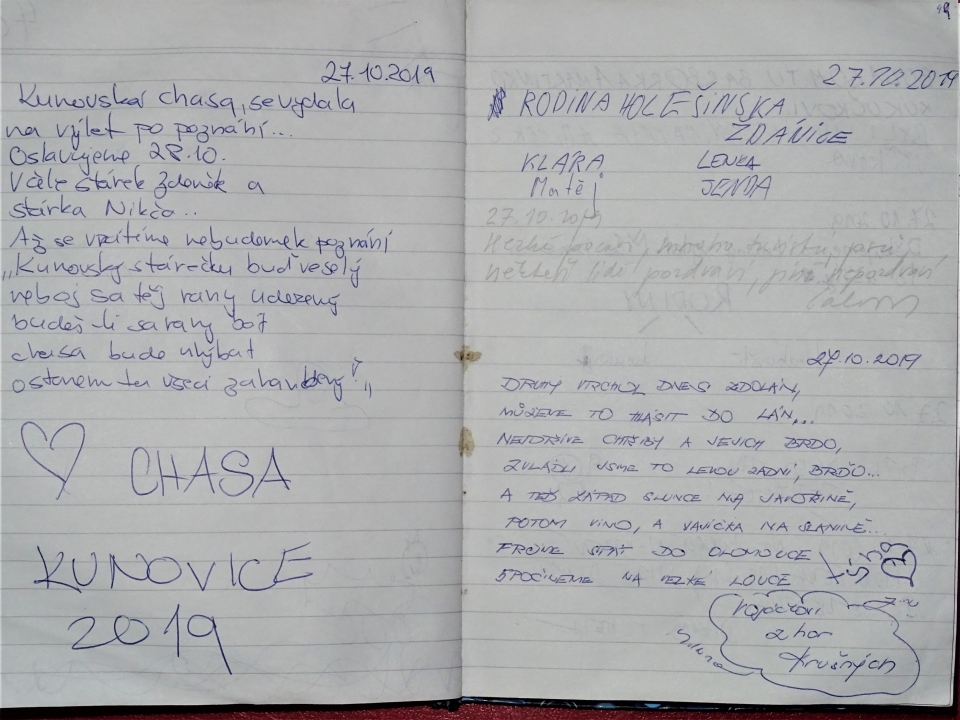 27.10.2019
Kunovská chasa, se vydala
na výlet po poznání...
Oslavujeme 28.10.
V čele stárek Zdeněk a
stárka Nikča..
Až se vrátíme nebudem ek poznání
„Kunovský stárečku buď veselý
neboj sa téj rany uderený
budeš-li sa rany bát
chasa bude uhýbat
ostanem tu všeci zahanbený!"
CHASA
KUNOVICE
2019
27.10.2019
RODINA HOLEŠINSKA
ŽDÁNICE
KLÁRA LENKA
Matěj JENDA
27.10.2019
Hezké počasí, mnoho turistů,
někteří lidi pozdraví, jiní nepozdraví
27.10.2019
DRUHÝ VRCHOL DNES ZDOLÁN,
MŮŽEME TO HLÁSIT DO LÁN...
NEJDŘÍVE CHŘIBY A JEJICH BRDO,
ZVLÁDLI JSME TO LEVOU ZADNÍ, BRĎO...
A TEĎ ZÁPAD SLUNCE NA JAVOŘINĚ,
POTOM VÍNO, A VAJÍČKA NA SLANINĚ...
FRČÍME SPÁT DO OLOMOUCE
SPOČINEME NA VELKÉ LOUCE
z hor
Krušných